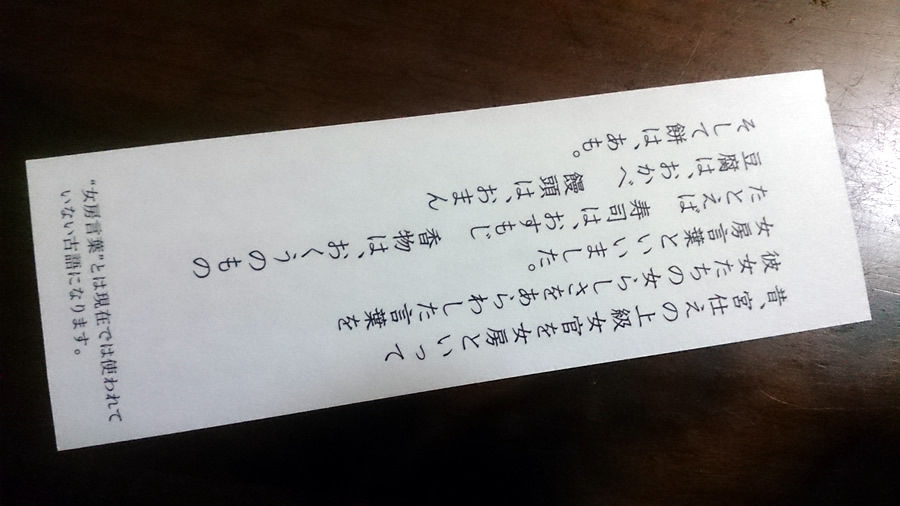 昔、宮仕えの上級女官を女房といって
彼女たちの女らしさをあらわした言葉を
女房言葉といいました。
たとえば 寿司は、おすもじ 香物は、おくうのもの
豆腐は、おかべ 饅頭は、おまん
そして餅は、あも。
“女房言葉”とは現在では使われて
いない古語になります。